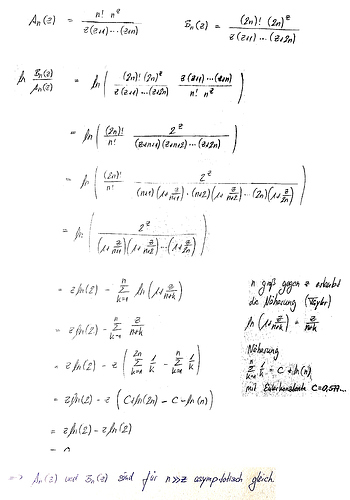 Aₙ(z) = n! nᶻ / z(z+1)⋯(z+n)    Bₙ(z) = (2n)! (2n)ᶻ / z(z+1)⋯(z+2n)
ln Bₙ(z)/Aₙ(z) = ln( (2n)! (2n)ᶻ / z(z+1)⋯(z+2n) · z(z+1)⋯(z+n) / n! nᶻ )
= ln( (2n)!/n! · 2ᶻ / (z+n+1)(z+n+2)⋯(z+2n) )
= ln( (2n)!/n! · 2ᶻ / (n+1)(1+z/(n+1))·(n+2)(1+z/(n+2))⋯(2n)(1+z/2n) )
= ln( 2ᶻ / (1+z/(n+1))(1+z/(n+2))⋯(1+z/2n) )
= z ln(2) − Σₖ₌₁ⁿ ln(1+z/(n+k))
= z ln(2) − Σₖ₌₁ⁿ z/(n+k)
= z ln(2) − z ( Σₖ₌₁²ⁿ 1/k − Σₖ₌₁ⁿ 1/k )
= z ln(2) − z ( C + ln(2n) − C − ln(n) )
= z ln(2) − z ln(2)
= 0
n groß gegen z erlaubt
die Näherung (Taylor)
ln(1+z/(n+k)) = z/(n+k)
Näherung
Σₖ₌₁ⁿ 1/k = C + ln(n)
mit Eulerkonstante C=0,577...
⇒ Aₙ(z) und Bₙ(z) sind für n≫z asymptotisch gleich